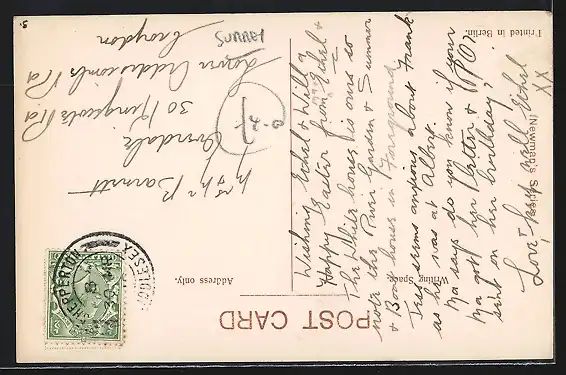 POST CARD
Writing Space.
Address only.
(Newman's Series)
Printed in Berlin.
Wishing Ethel & Will a
Happy Easter from Ethel &
The White house is ours so
note the Rive Garden & Summer
& Boat house in Foreground
Tess seems anxious about Frank
as he was at Albert.
Ma says do you know if your
Ma got her letter & P.O.
sent on her birthday?
Love from Will Ethel
XX
Mrs W Barnett
Avondale
30 Kingscote Rd
Lower Addiscombe Rd
Croydon
SURREY
SHEPPERTON
MIDDLESEX
5.